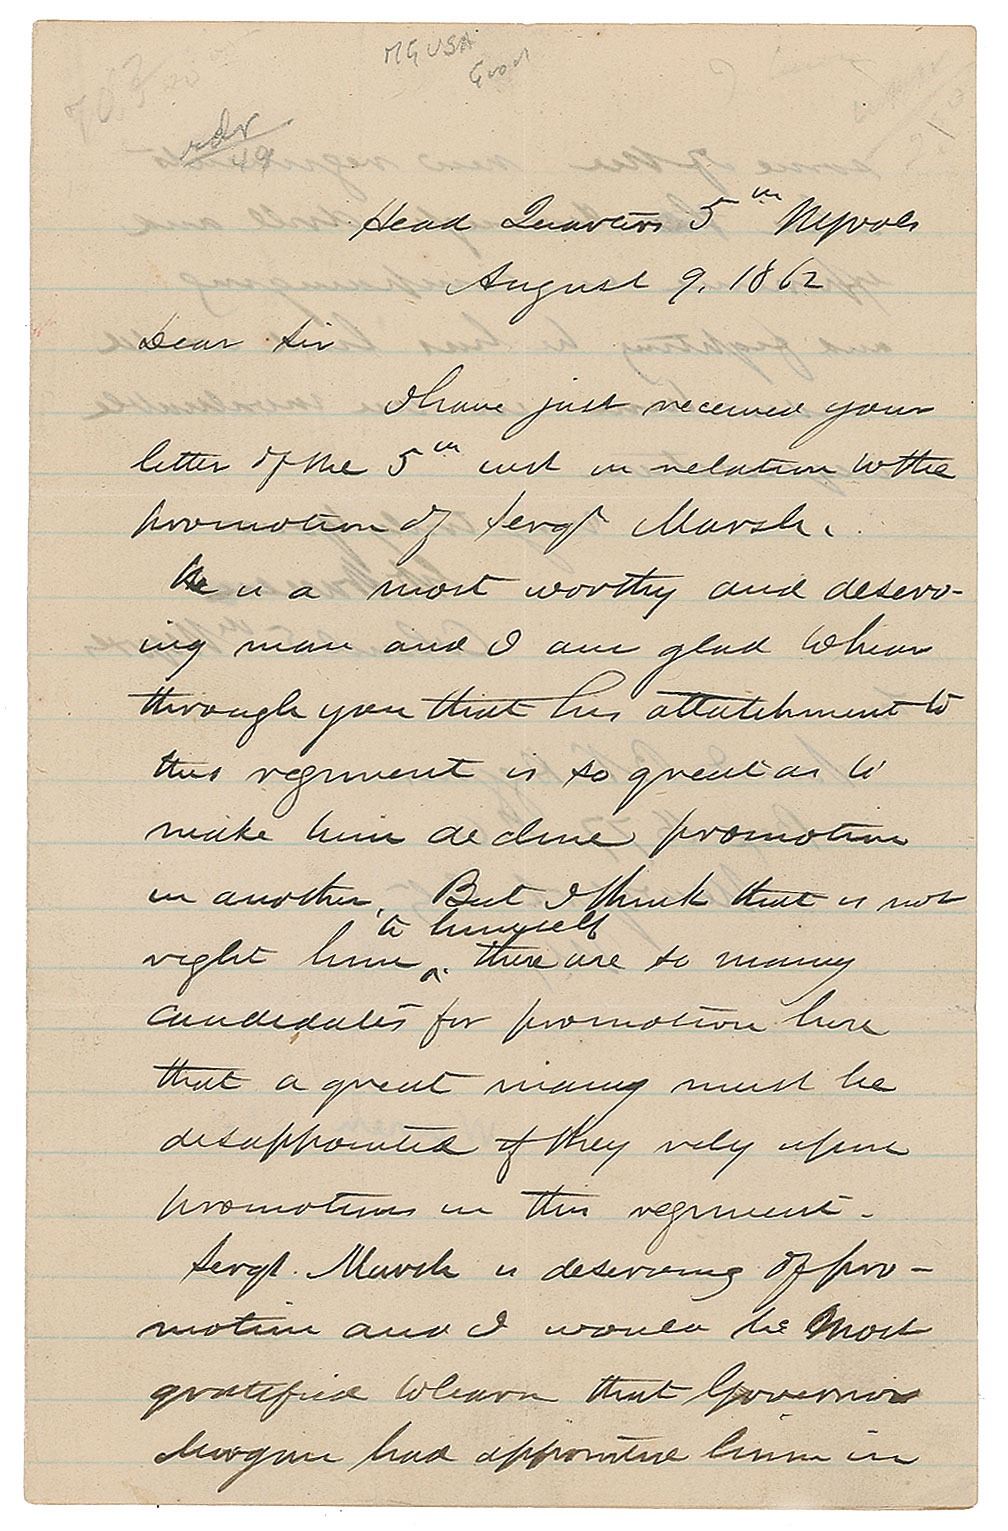 MGUSA
Good
Head Quarters 5th NYVols
August 9, 1862
Dear Sir
I have just received your
letter of the 5th inst in relation to the
promotion of Sergt Marsh.
He is a most worthy and deserv-
ing man and I am glad to hear
through you that his attatchment to
this regiment is so great as to
make him decline promotion
in another. But I think that is not
to himself
right him ^. there are so many
candidates for promotion here
that a great many must be
disappointed if they rely upon
promotions in this regiment.
Sergt. Marsh is deserving of pro-
motion and I would be most
gratified to learn that Governor
Morgan had appointed him in